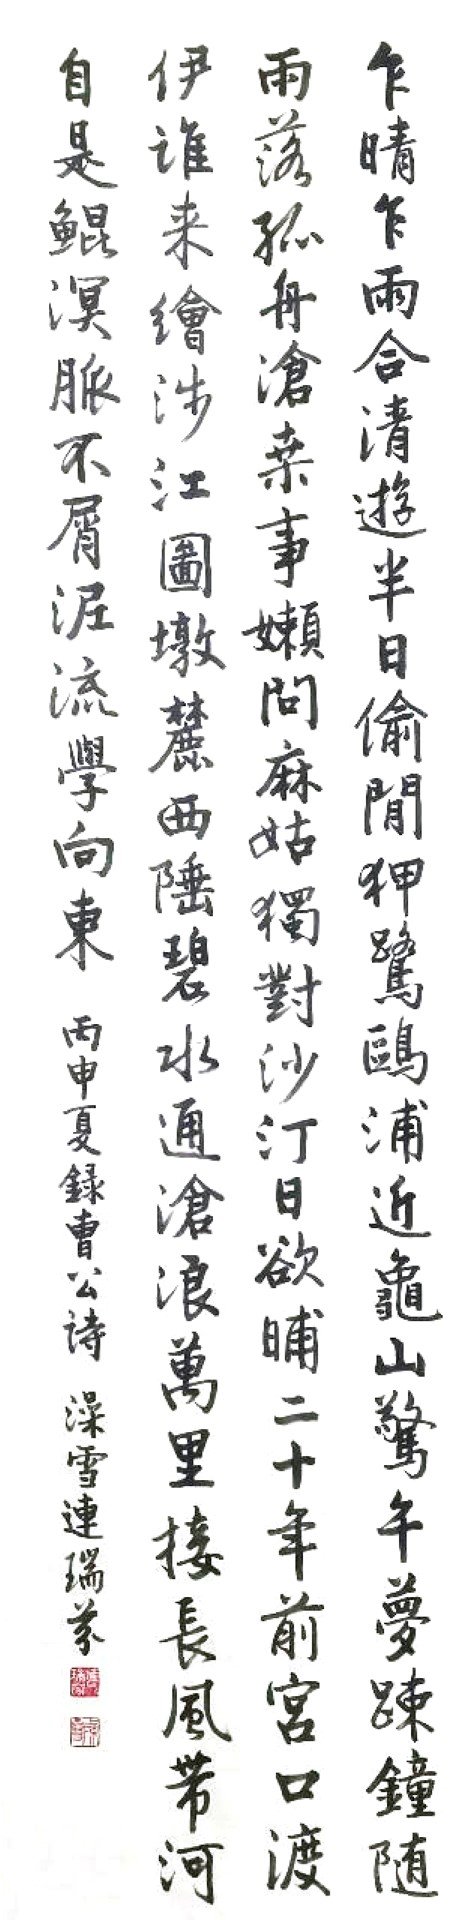 乍晴乍雨合清遊半日偷閒狎鷺鷗浦近龜山驚午夢踈鐘随
雨落孤舟滄桒事嬾問麻姑獨對沙汀日欲晡二十年前宮口渡
伊谁来繪涉江圖墩麓西陲碧水通滄浪萬里接長風帶河
自是鲲溟脈不屑泥流學向東 丙申夏録曹公詩 澡雪連瑞芬